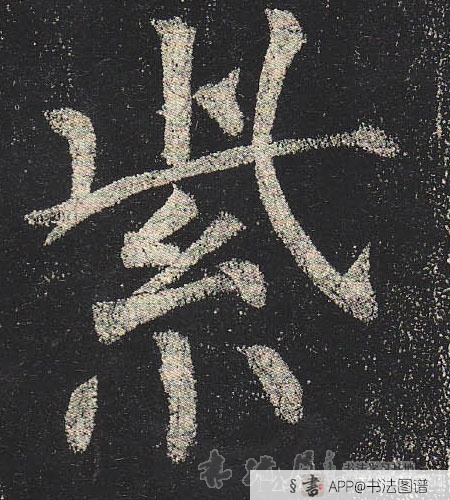 紫
§ 書 APP@书法图谱